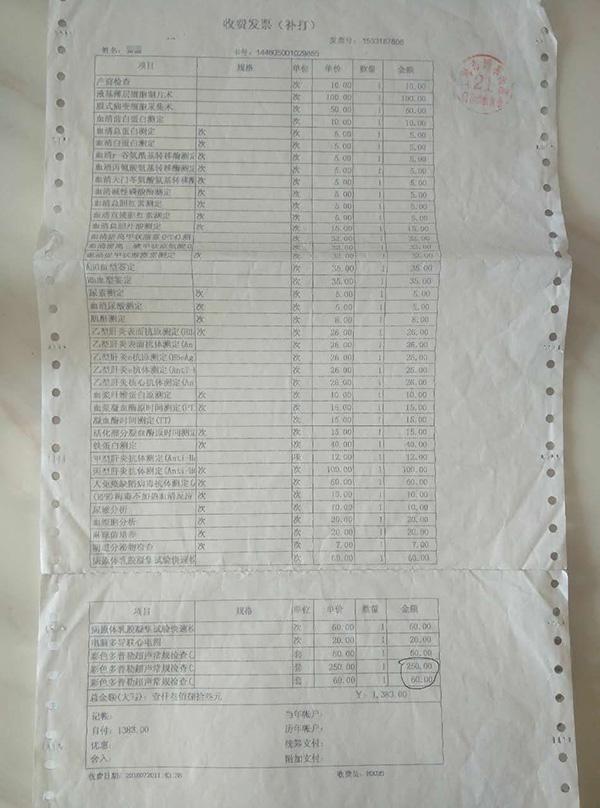 收费发票（补打）
发票号：1533187806
姓名： 卡号：144605001029865
项目 规格 单位 单价 数量 金额
产前检查 次 10.00 1 10.00
液基薄层细胞制片术 次 100.00 1 100.00
脱式病变细胞采集术 次 50.00 1 50.00
血清前白蛋白测定 次 10.00 1 10.00
血清总蛋白测定 次 次 5.00 1 5.00
血清白蛋白测定 次 次 5.00 1 5.00
血清r-谷氨酰基转移酶测定 次 次 5.00 1 5.00
血清丙氨酸氨基转移酶测定 次 次 5.00 1 5.00
血清天门冬氨酸氨基转移酶 次 次 5.00 1 5.00
血清碱性磷酸酶测定 次 次 5.00 1 5.00
血清总胆红素测定 次 次 5.00 1 5.00
血清直接胆红素测定 次 次 5.00 1 5.00
血清总胆汁酸测定 次 次 15.00 1 15.00
次 32.00 1
次
次
ABO血型鉴定 次 35.00 1 35.00
Rh血型鉴定 次 35.00 1 35.00
尿素测定 次 次 5.00 1 5.00
血清尿酸测定 次 次 5.00 1 5.00
肌酐测定 次 次 8.00 1 8.00
乙型肝炎表面抗原测定(Hb 次 次 26.00 1 26.00
乙型肝炎表面抗体测定(An 次 26.00 1 26.00
乙型肝炎e抗原测定(HbeAg 次 26.00 1 26.00
乙型肝炎e抗体测定(Anti- 次 26.00 1 26.00
乙型肝炎核心抗体测定(An 次 26.00 1 26.00
血浆纤维蛋白原测定 次 次 10.00 1 10.00
血浆凝血酶原时间测定(PT) 次 次 15.00 1 15.00
凝血酶时间测定(TT) 次 次 15.00 1 15.00
活化部分凝血酶原时间测定 次 次 15.00 1 15.00
铁蛋白测定 次 次 40.00 1 40.00
甲型肝炎抗体测定(Anti-H 项 12.00 1 12.00
丙型肝炎抗体测定(Anti-H 次 次 100.00 1 100.00
人免疫缺陷病毒抗体测定( 次 次 60.00 1 60.00
梅毒不加热血清反应 次 次 10.00 1 10.00
尿液分析 次 次 10.00 1 10.00
血细胞分析 次 次 20.00 1 20.00
淋球菌培养 次 次 20.00 1 20.00
阴道分泌物检查 次 次 7.00 1 7.00
病原体乳胶凝集试验快速检 次 次 60.00 1 60.00
项目 规格 单位 单价 数量 金额
病原体乳胶凝集试验快速检 次 60.00 1 60.00
电脑多导联心电图 次 20.00 1 20.00
彩色多普勒超声常规检查( 套 60.00 1 60.00
彩色多普勒超声常规检查( 套 250.00 1 250.00
彩色多普勒超声常规检查( 套 60.00 1 60.00
总金额(大写)：壹仟叁佰捌拾叁元 ￥：1,383.00
记帐： 当年帐户：
自付：1383.00 历年帐户：
优惠： 统筹支付：
舍入： 附加支付：
收费日期： 收费员：